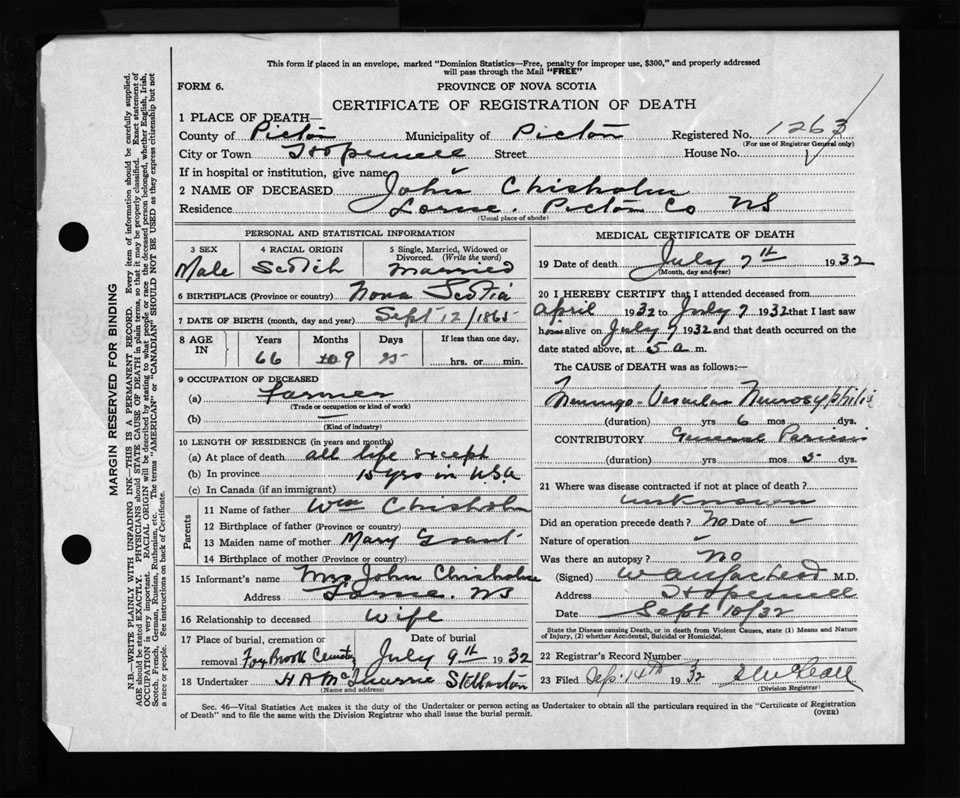 This form if placed in an envelope, marked "Dominion Statistics—Free, penalty for improper use, $300," and properly addressed
will pass through the Mail "FREE"
FORM 6.
PROVINCE OF NOVA SCOTIA
CERTIFICATE OF REGISTRATION OF DEATH
1 PLACE OF DEATH—
County of Pictou Municipality of Pictou Registered No. 1263
(For use of Registrar General only)
City or Town Hopewell Street House No.
If in hospital or institution, give name
2 NAME OF DECEASED John Chisholm
Residence Lorne. Pictou Co NS
(Usual place of abode)
PERSONAL AND STATISTICAL INFORMATION
3 SEX 4 RACIAL ORIGIN 5 Single, Married, Widowed or Divorced. (Write the word)
Male Scotch Married
6 BIRTHPLACE (Province or country) Nova Scotia
7 DATE OF BIRTH (month, day and year) Sept 12/1865
8 AGE IN Years Months Days If less than one day,
66 9 25 hrs. or min.
9 OCCUPATION OF DECEASED
(a) Farmer
(Trade or occupation or kind of work)
(b) —
(Kind of industry)
10 LENGTH OF RESIDENCE (in years and months)
(a) At place of death all life except
(b) In province 15 yrs in USA
(c) In Canada (if an immigrant)
Parents
11 Name of father Wm Chisholm
12 Birthplace of father (Province or country)
13 Maiden name of mother Mary Grant
14 Birthplace of mother (Province or country)
15 Informant's name Mrs John Chisholm
Address Lorne. NS
16 Relationship to deceased Wife
17 Place of burial, cremation or removal Date of burial
Fox Brook Cemetry July 9th 1932
18 Undertaker H A McQuarrie Stellarton
(Name and address)
MEDICAL CERTIFICATE OF DEATH
19 Date of death July 7th 1932
(Month, day and year)
20 I HEREBY CERTIFY that I attended deceased from
April 1932 to July 7 1932 that I last saw
him alive on July 7 1932 and that death occurred on the
date stated above, at 5 a m.
The CAUSE of DEATH was as follows:—
Meningo-Vascular Neurosyphilis
(duration) yrs 6 mos dys.
CONTRIBUTORY General Paresis
(duration) yrs mos 5 dys.
21 Where was disease contracted if not at place of death?
unknown
Did an operation precede death? No Date of
Nature of operation
Was there an autopsy? No
(Signed) M.D.
Address Hopewell
Date Sept 10/32
State the Disease causing Death, or in death from Violent Causes, state (1) Means and Nature
of Injury, (2) whether Accidental, Suicidal or Homicidal.
22 Registrar's Record Number
23 Filed Sep. 14th 1932
(Division Registrar)
Sec. 46—Vital Statistics Act makes it the duty of the Undertaker or person acting as Undertaker to obtain all the particulars required in the "Certificate of Registration
of Death" and to file the same with the Division Registrar who shall issue the burial permit. (OVER)
MARGIN RESERVED FOR BINDING
N.B.—WRITE PLAINLY WITH UNFADING INK—THIS IS A PERMANENT RECORD. Every item of information should be carefully supplied.
AGE should be stated EXACTLY. PHYSICIANS should STATE CAUSE OF DEATH in plain terms, so that it may be properly classified. Exact statement of
OCCUPATION is very important. RACIAL ORIGIN will be described by stating to what people or race the deceased person belonged, whether English, Irish,
Scotch, French, German, Russian, Ruthenian, etc. The terms "AMERICAN" or "CANADIAN" SHOULD NOT BE USED as they express citizenship but not
a race or people. See instructions on back of Certificate.